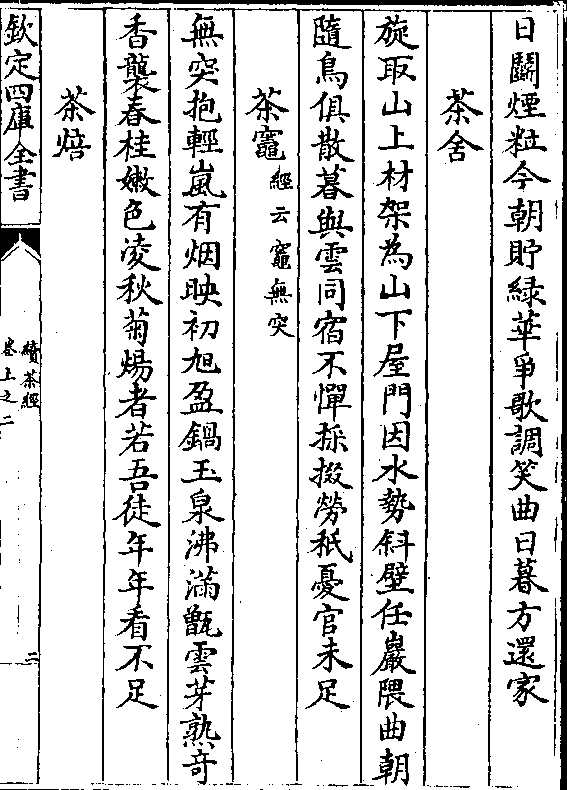 日鬬煙粒今朝貯緑華爭歌調笑曲日暮方還家
茶舍
旋取山上材架為山下屋門因水勢斜壁任巖隈曲朝
隨鳥俱散暮與雲同宿不憚採掇勞秪憂官未足
茶竈經云竈無突
無突抱輕嵐有烟映初旭盈鍋玉泉沸滿甑雲芽熟奇
香襲春桂嫩色凌秋菊煬者若吾徒年年看不足
茶焙
欽定四庫全書
續茶經
卷上之二
三